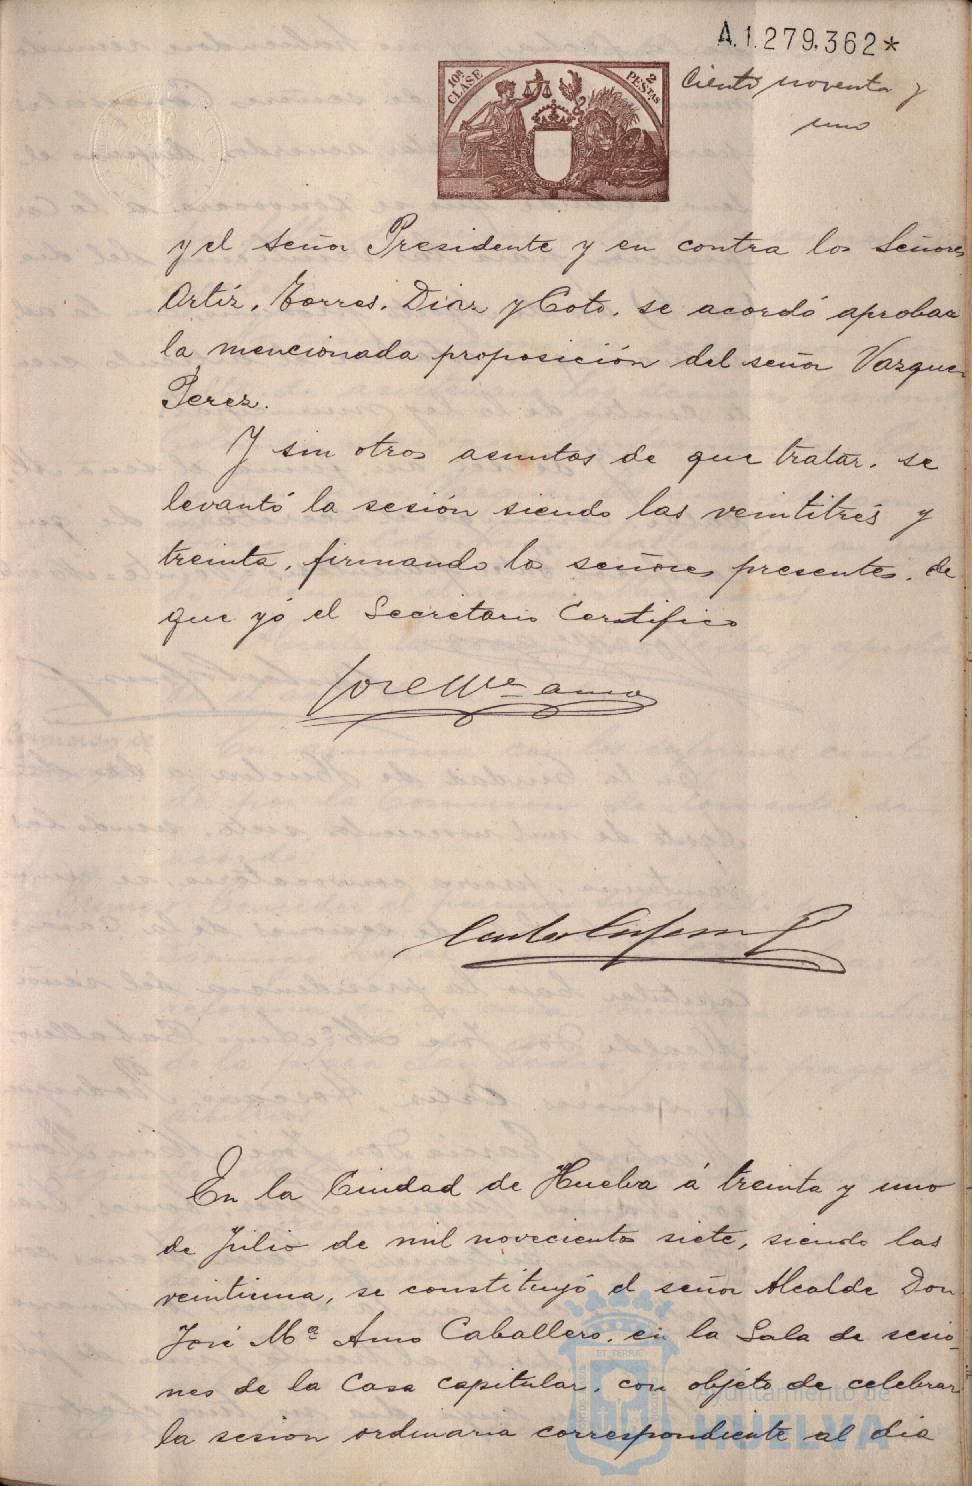 A.1.279.362*
10ª CLASE
2 PESTAS
Ciento noventa y
uno
y el señor Presidente y en contra los Señores
Ortíz, Torres, Diaz y Coto, se acordó aprobar
la mencionada proposición del señor Vazquez
Perez.
Y sin otros asuntos de que tratar, se
levantó la sesión siendo las veintitrés y
treinta, firmando lo señores presentes, de
que yó el Secretario Certifico
José Mª amo
En la Ciudad de Huelva á treinta y uno
de Julio de mil novecientos siete, siendo las
veintiuna, se constituyó el señor Alcalde Don
José Mª Amo Caballero, en la Sala de sesio-
nes de la Casa capitular, con objeto de celebrar
la sesion ordinaria correspondiente al dia
ET TERRÆ
Ayuntamiento de
HUELVA